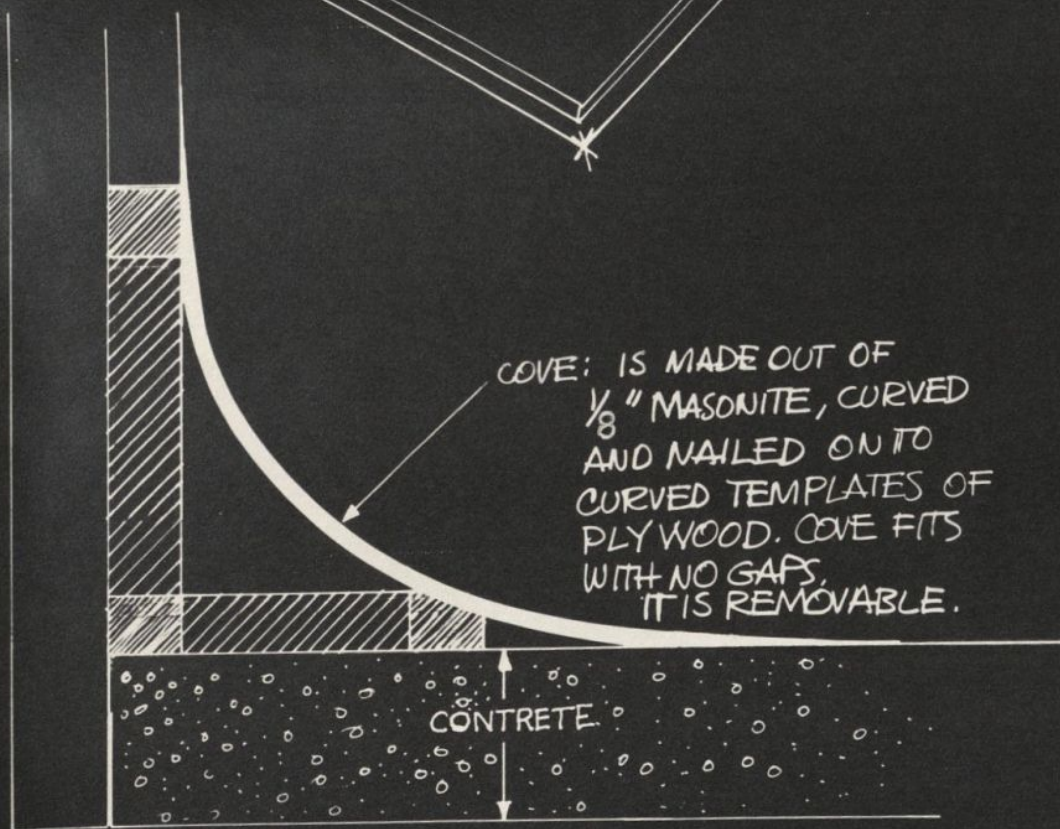 COVE: IS MADE OUT OF
1/8" MASONITE, CURVED
AND NAILED ONTO
CURVED TEMPLATES OF
PLYWOOD. COVE FITS
WITH NO GAPS.
IT IS REMOVABLE.
CONTRETE